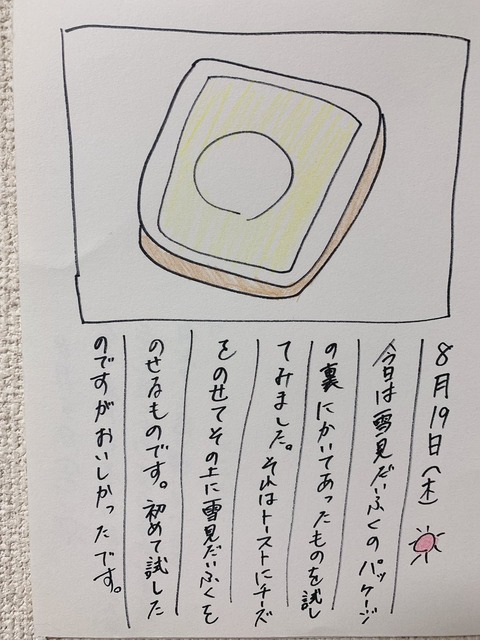 8月19日(木)
今日は雪見だいふくのパッケージ
の裏にかいてあったものを試し
てみました。それはトーストにチーズ
をのせてその上に雪見だいふくを
のせるものです。初めて試した
のですがおいしかったです。